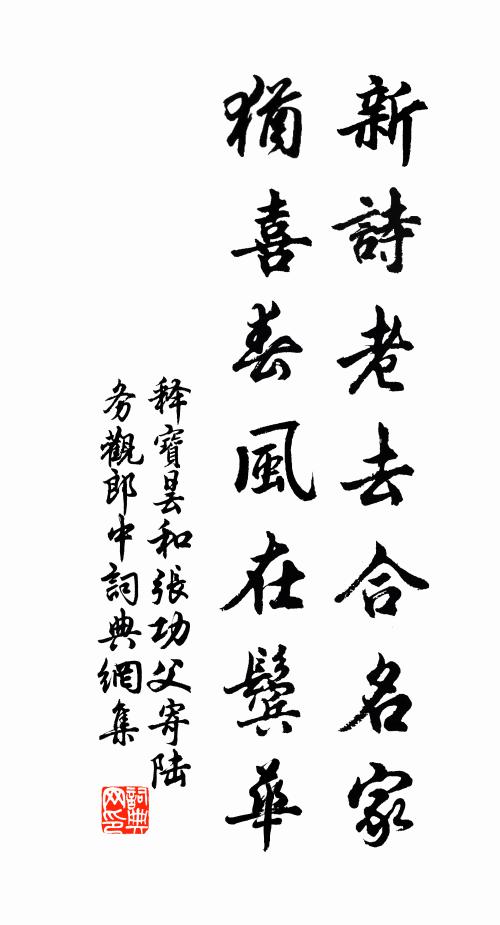 新詩老去合名家
猶喜春風在鬢華
释寶曇和張功父寄陆
务觀郎中詞典網集
詞典网印